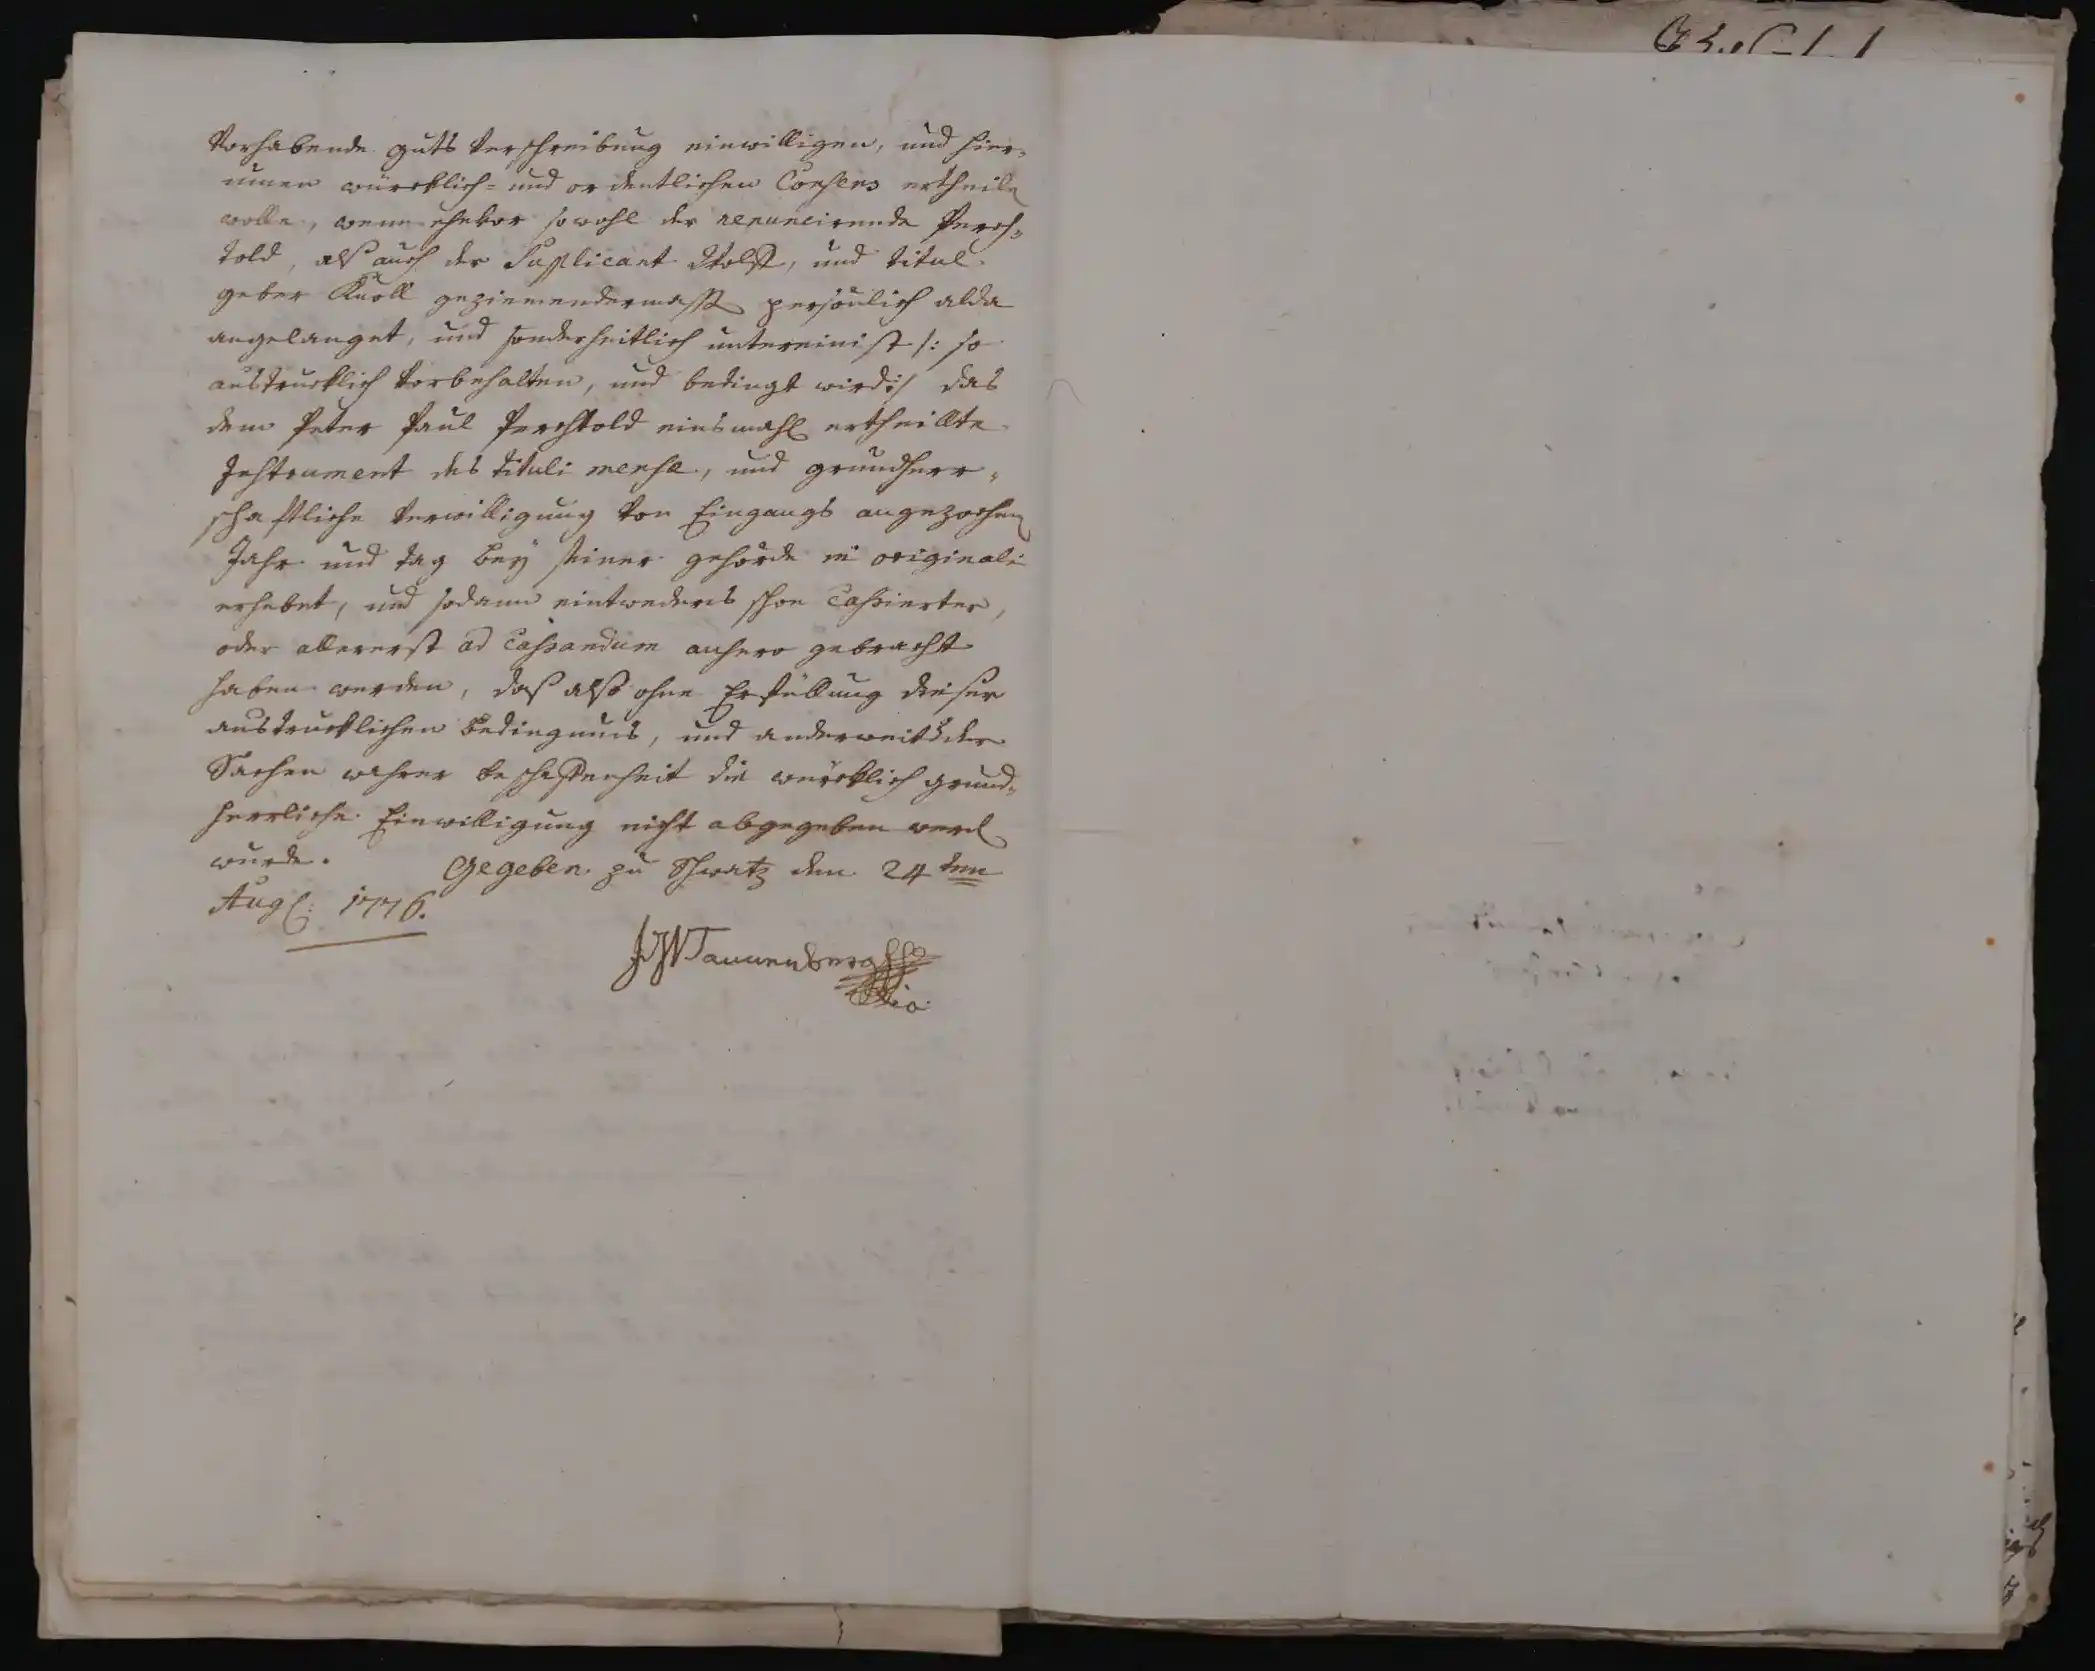 vorhabende guts verschreibung einwilligen, und hier=
innen würcklich= und ordentlichen Consens ertheilen
wolle, wenn ehevor sowohl der renuncirende Perch=
told, alß auch der Supplicant Wolf, und titul
geber Knoll geziemendermasse persönlich alda
angelanget, und sonderheitlich untereinist /: so
austrucklich vorbehalten, und bedingt wird :/ das
dem Peter Paul Perchtold einsmahls ertheillte
Instrument des tituli mensæ, und grundherr=
schaftliche verwilligung von Eingangs angezochen
Jahr und tag bey seiner gehörde in originali
erhebet, und sodann eintweders schon Cassierter,
oder allererst ad Cassandum anhero gebracht
haben werden, daß also ohne Erfüllung dieser
austrucklichen bedingnuis, und anderweits der
Sachen wahrer beschaffenheit die würcklich grund=
herrliche Einwilligung nicht abgegeben werden
wurde. Gegeben zu Schwatz den 24ten
Aug: 1776.
Tannenberg